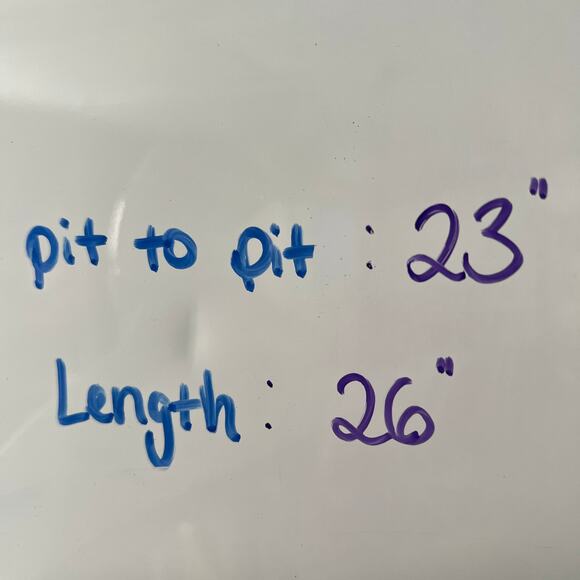 pit to pit : 23"
Length : 26"